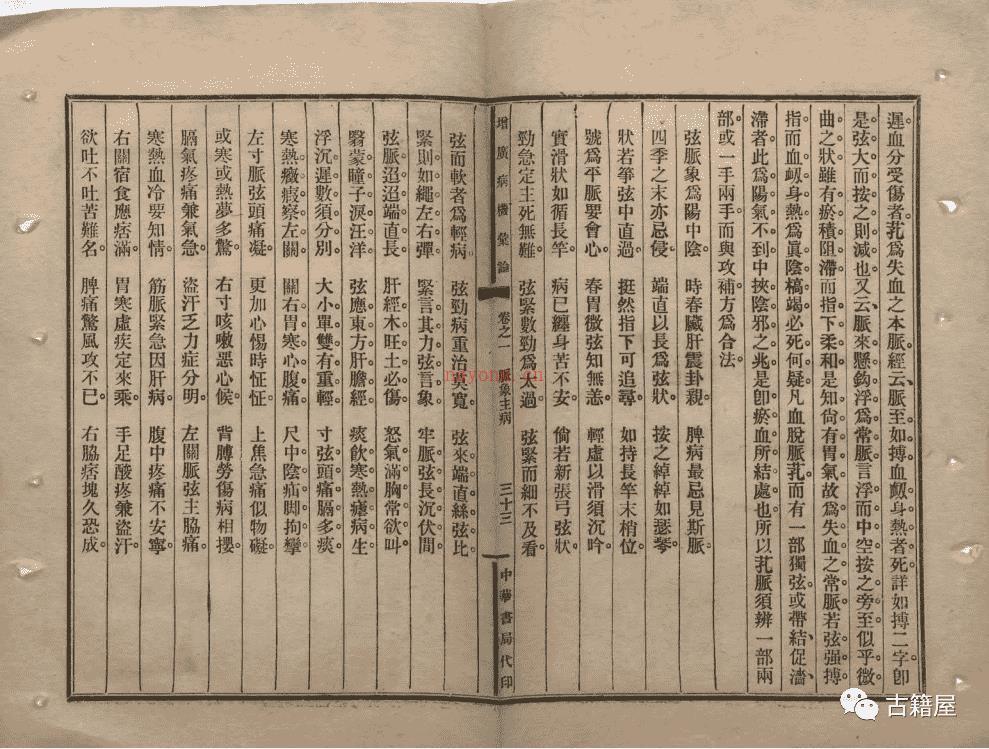 遲血分受傷者芤爲失血之本脈經云脈至如搏血衂身熱者死詳如搏二字卽
是弦大而按之則減也又云脈來懸鈎浮爲常脈言浮而中空按之旁至似乎微
曲之狀雖有瘀積阻滯而指下柔和是知尙有胃氣故爲失血之常脈若弦强搏
指而血衂身熱爲眞陰槁竭必死何疑凡血脫脈芤而有一部獨弦或帶結促濇
滯者此爲陽氣不到中挾陰邪之兆是卽瘀血所結處也所以芤脈須辨一部兩
部或一手兩手而與攻補方爲合法
弦脈象爲陽中陰 時春臟肝震卦親 脾病最忌見斯脈
四季之末亦忌侵 端直以長爲弦狀 按之綽綽如瑟琴
狀若箏弦中直過 挺然指下可追尋 如持長竿末梢位
號爲平脈要會心 春胃微弦知無恙 輕虛以滑須沉吟
實滑狀如循長竿 病已纏身苦不安 倘若新張弓弦狀
勁急定主死無難 弦緊數勁爲太過 弦緊而細不及看
增廣病機彙論 卷之一 脈象主病 三十三 中華書局代印
弦而軟者爲輕病 弦勁病重治莫寬 弦來端直絲弦比
緊則如繩左右彈 緊言其力弦言象 牢脈弦長沉伏間
弦脈迢迢端直長 肝經木旺土必傷 怒氣滿胸常欲叫
翳蒙瞳子淚汪洋 弦應東方肝膽經 痰飮寒熱瘧病生
浮沉遲數須分別 大小單雙有重輕 寸弦頭痛膈多痰
寒熱癥瘕察左關 關右胃寒心腹痛 尺中陰疝脚拘攣
左寸脈弦頭痛凝 更加心惕時怔怔 上焦急痛似物礙
或寒或熱夢多驚 右寸咳嗽惡心候 背膊勞傷病相攖
膈氣疼痛兼氣急 盜汗乏力症分明 左關脈弦主脇痛
寒熱血冷要知情 筋脈緊急因肝病 腹中疼痛不安寧
右關宿食應痞滿 胃寒虛疾定來乘 手足酸疼兼盜汗
欲吐不吐苦難名 脾痛驚風攻不已 右脇痞塊久恐成
古籍屋